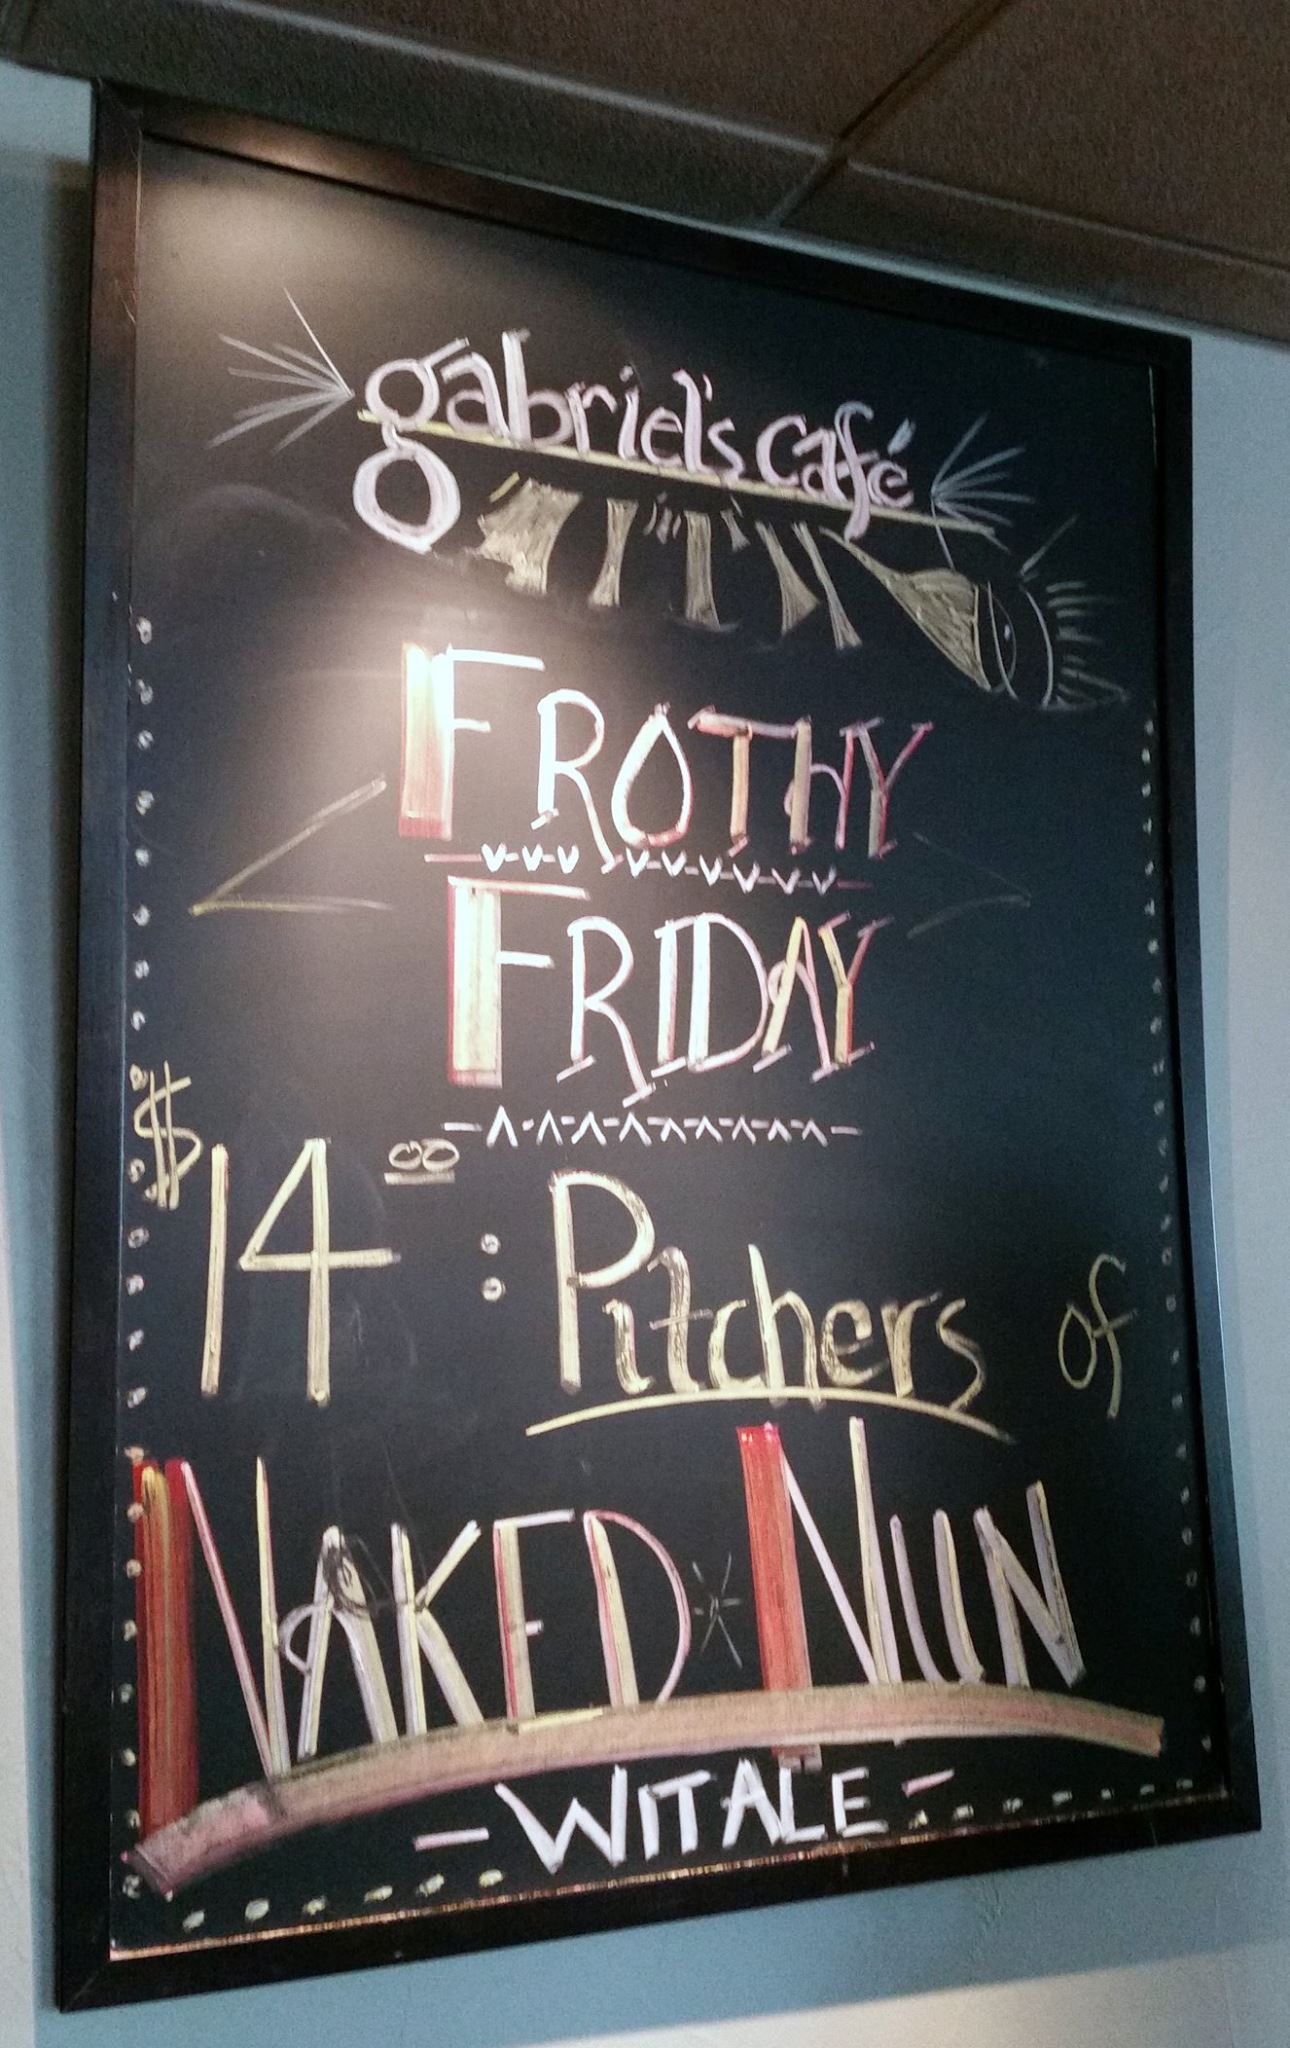 gabriel's café
FROTHY
FRIDAY
$14.00 : Pitchers of
NAKED NUN
- WITALE -